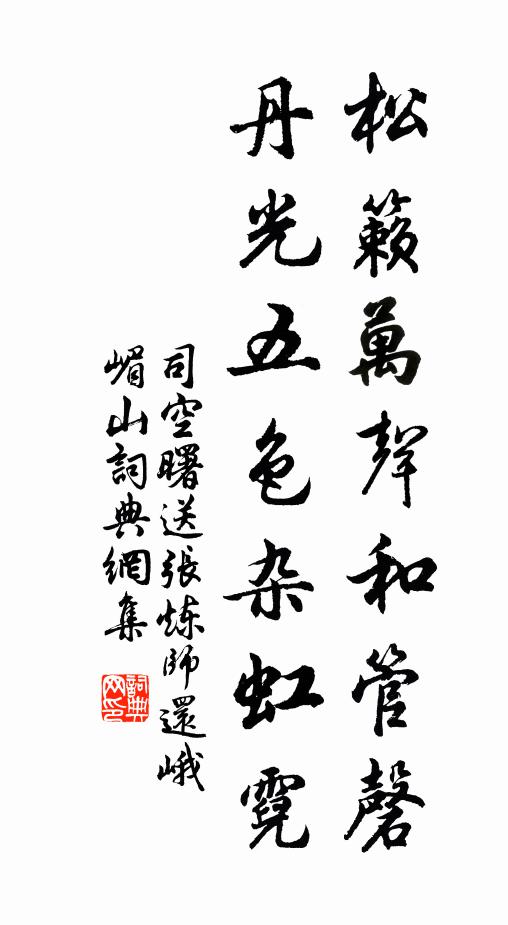 松籟萬聲和管磬
丹光五色杂虹霓
司空曙送張炼師還峨
嵋山詞典網集
詞典
网印